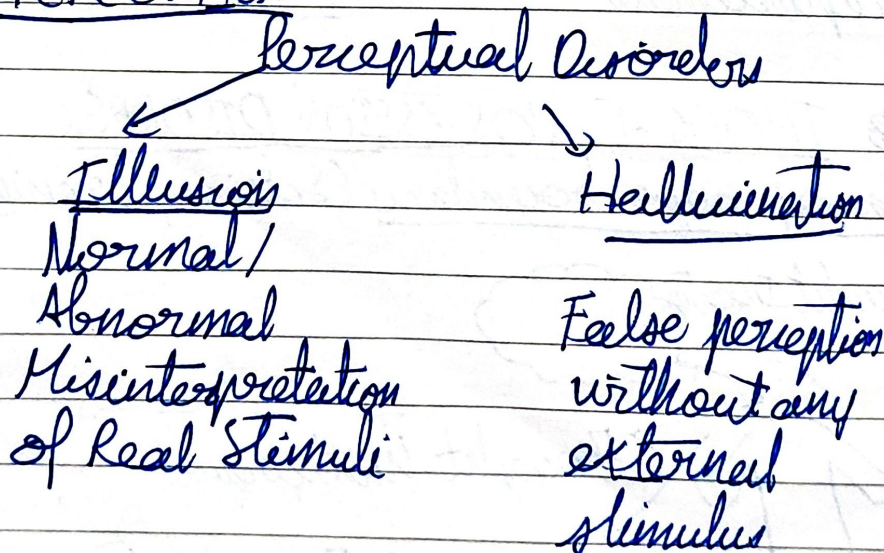 Perceptual Disorders
Illusion
Normal/
Abnormal
Misinterpretation
of Real Stimuli
Hallucination
False perception
without any
external
stimulus